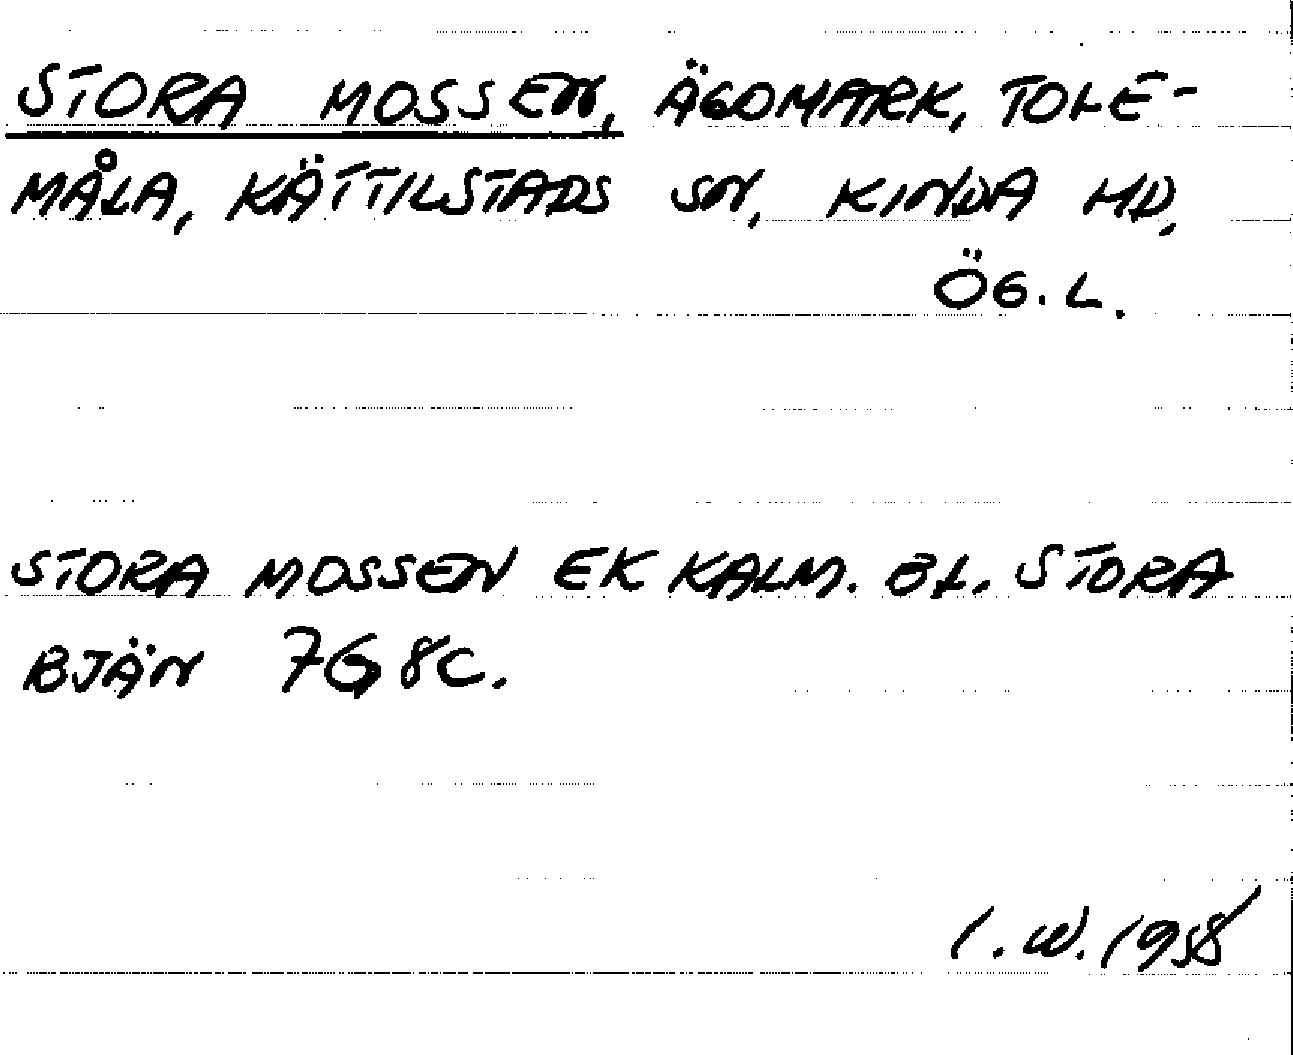 STORA MOSSEN, ÄGOMARK, TOLE-
MÅLA, KÄTTILSTADS SN, KINDA HD,
ÖG. L.
STORA MOSSEN EK KALM. BL. STORA
BJÄN 7G 8C.
I. W. 1958